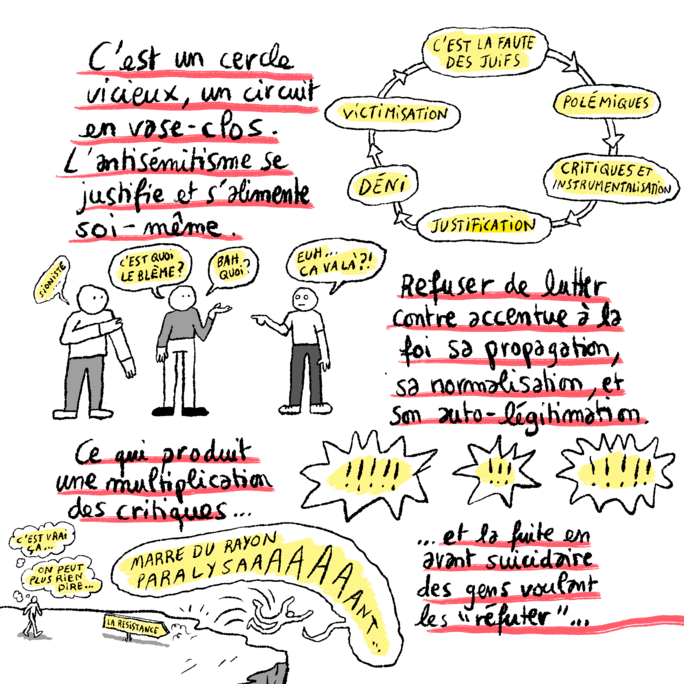 C'est un cercle
vicieux, un circuit
en vase-clos.
L'antisémitisme se
justifie et s'alimente
soi-même.
C'EST LA FAUTE
DES JUIFS
POLÉMIQUES
CRITIQUES ET
INSTRUMENTALISATION
JUSTIFICATION
DÉNI
VICTIMISATION
SIONISTE
C'EST QUOI
LE BLÈME?
BAH
QUOI?
EUH...
ÇA VA LÀ?!
Refuser de lutter
contre accentue à la
foi sa propagation,
sa normalisation, et
son auto-légitimation.
Ce qui produit
une multiplication
des critiques...
!!!!!
!!!
!!!!!
C'EST VRAI
ÇA...
ON PEUT
PLUS RIEN
DIRE...
LA RESISTANCE
MARRE DU RAYON
PARALYSAAAAAAANT...
...et la fuite en
avant suicidaire
des gens voulant
les "réfuter"...